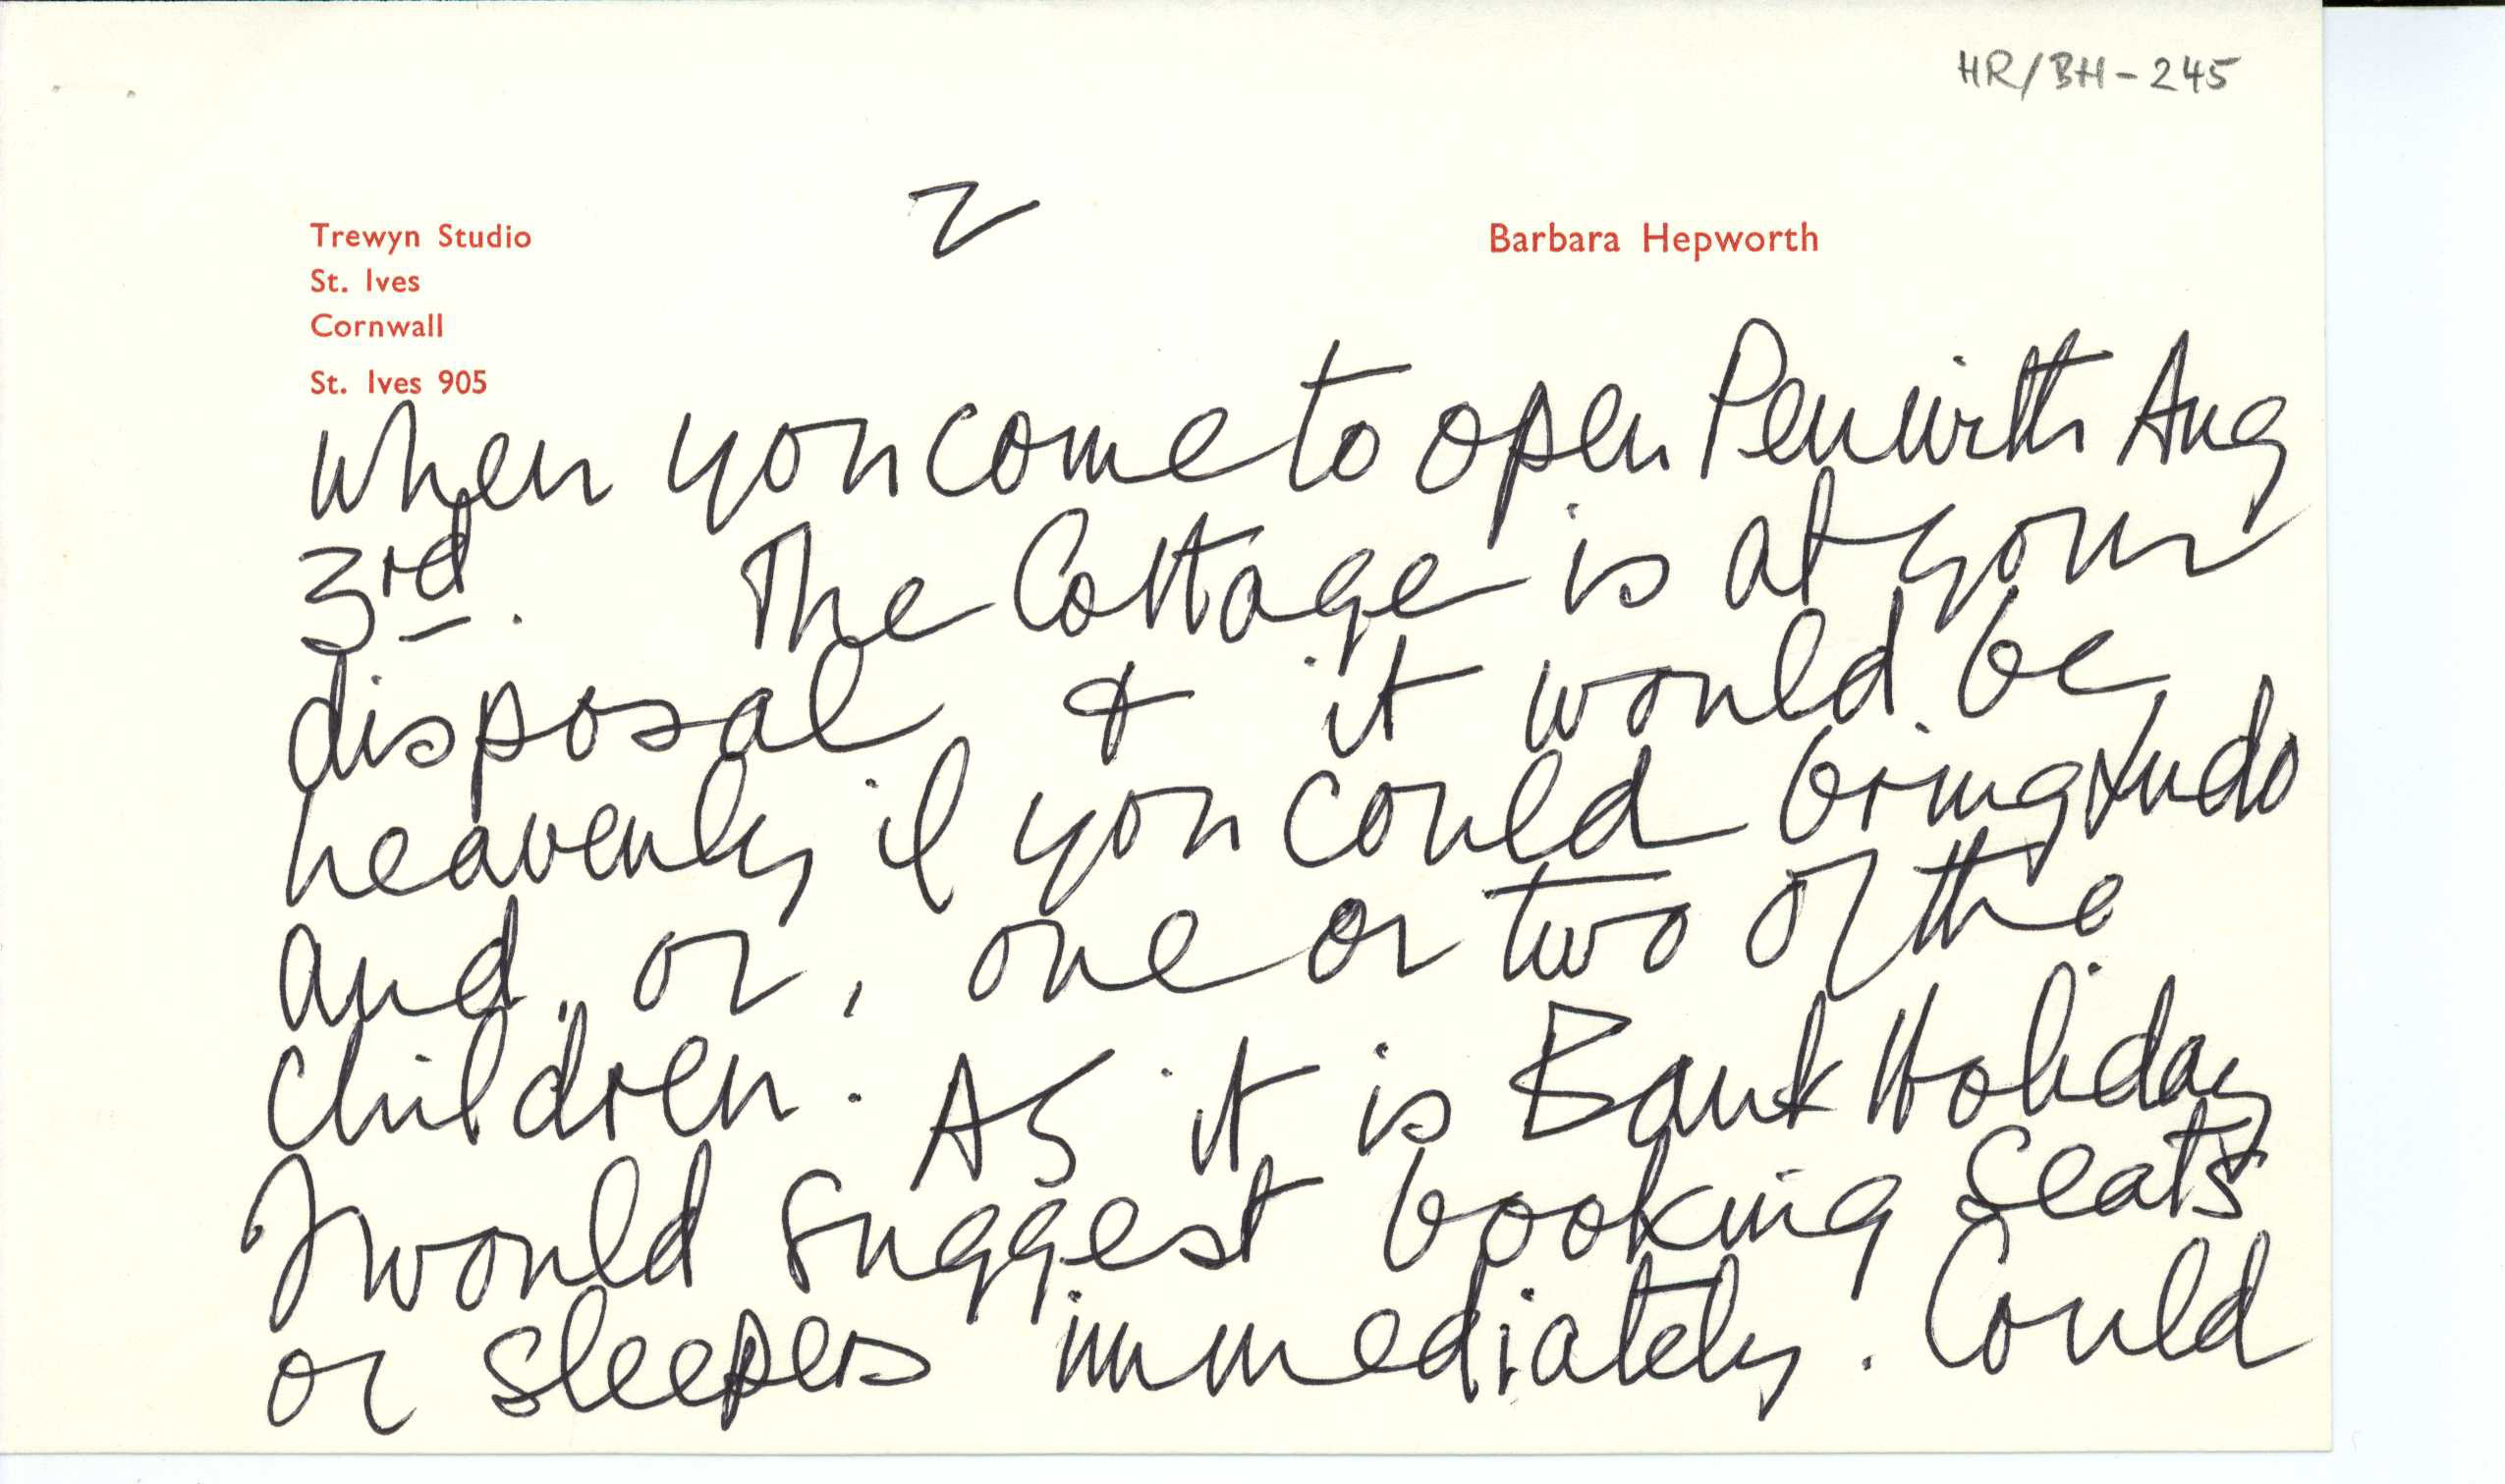 HR/BH-245
2
Trewyn Studio
St. Ives
Cornwall
St. Ives 905
Barbara Hepworth
when you come to open Penwith Aug
3rd. The Cottage is at your
disposal & it would be
heavenly if you could bring Ludo
and, or, one or two of the
children. As it is Bank Holiday
I would suggest booking seats
or sleepers immediately. Could